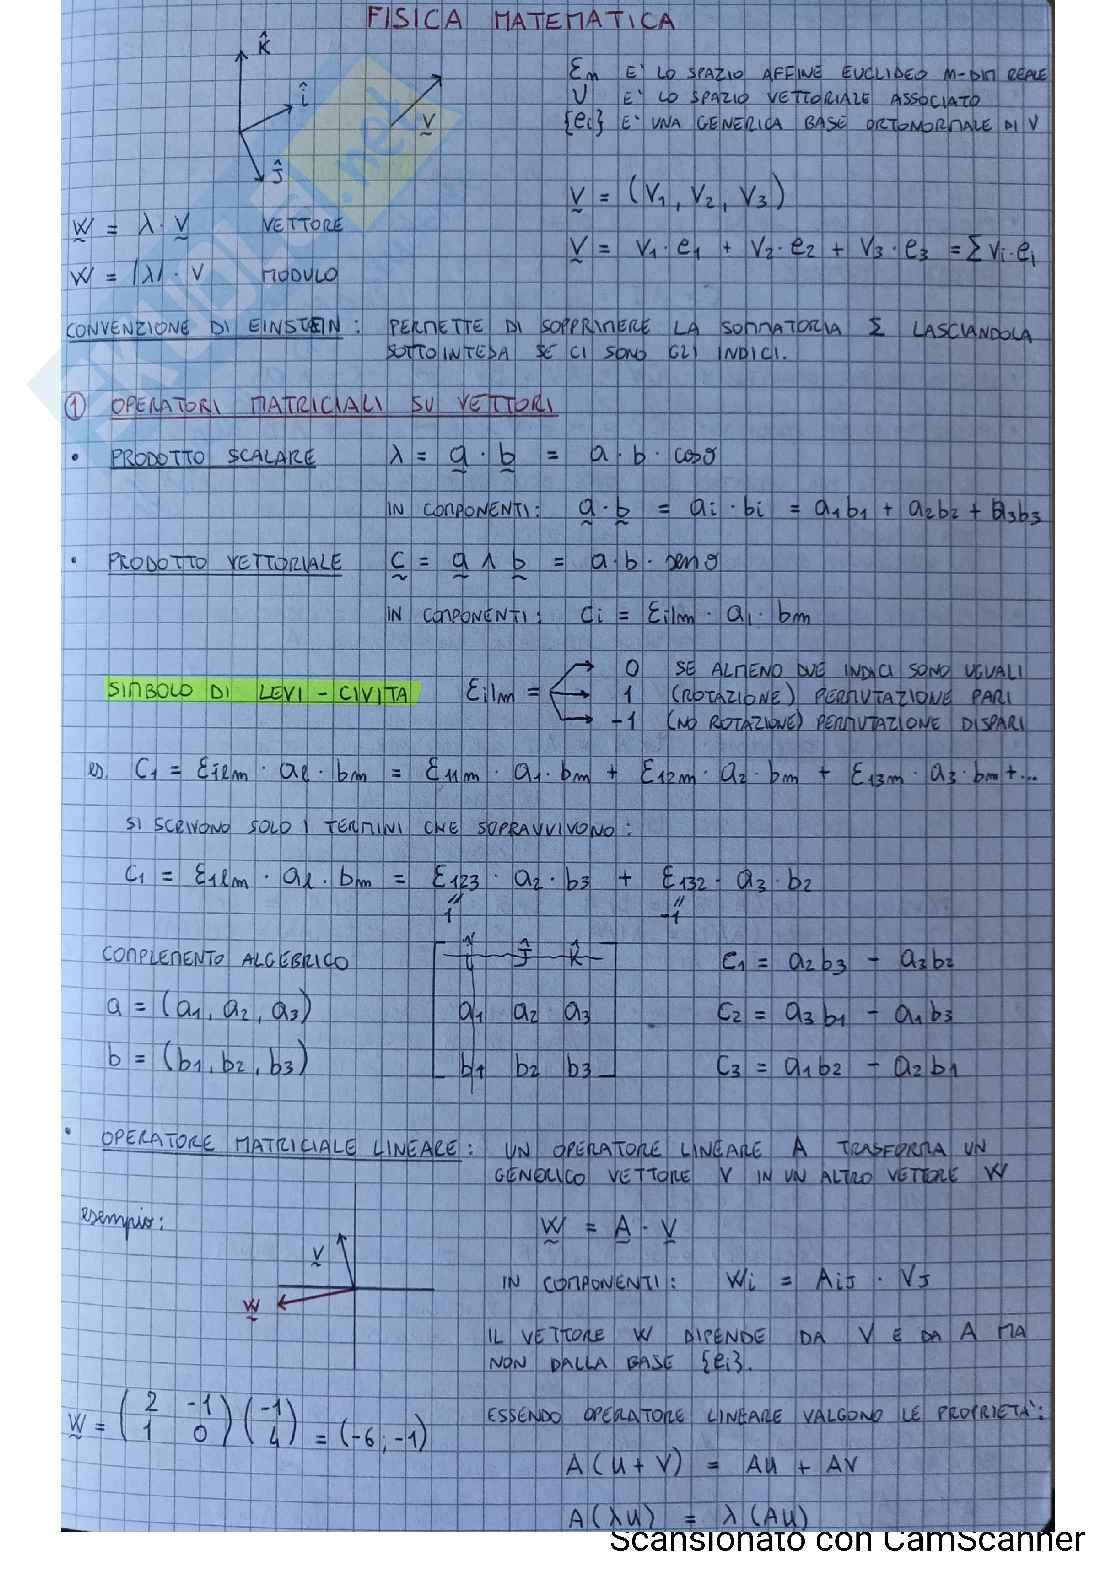 FISICA MATEMATICA
K̂
î
Ĵ
V
Ɛn E' LO SPAZIO AFFINE EUCLIDEO M-DIM REALE
V E' LO SPAZIO VETTORIALE ASSOCIATO
{ei} E' UNA GENERICA BASE ORTONORMALE DI V
V = (V1, V2, V3)
W = λ · V VETTORE
V = V1·e1 + V2·e2 + V3·e3 = Σ Vi·ei
W = |λ| · V MODULO
CONVENZIONE DI EINSTEIN: PERMETTE DI SOPPRIMERE LA SOMMATORIA Σ LASCIANDOLA
SOTTOINTESA SE CI SONO GLI INDICI.
① OPERATORI MATRICIALI SU VETTORI
• PRODOTTO SCALARE λ = a · b = a · b · cosθ
IN COMPONENTI: a · b = ai · bi = a1b1 + a2b2 + a3b3
• PRODOTTO VETTORIALE c = a ∧ b = a · b · senθ
IN COMPONENTI: ci = Ɛilm · al · bm
SIMBOLO DI LEVI-CIVITA Ɛilm =
0 SE ALMENO DUE INDICI SONO UGUALI
1 (ROTAZIONE) PERMUTAZIONE PARI
-1 (NO ROTAZIONE) PERMUTAZIONE DISPARI
es. C1 = Ɛilm · al · bm = Ɛ11m · a1 · bm + Ɛ12m · a2 · bm + Ɛ13m · a3 · bm + ...
SI SCRIVONO SOLO I TERMINI CHE SOPRAVVIVONO:
C1 = Ɛ1lm · al · bm = Ɛ123 · a2 · b3 + Ɛ132 · a3 · b2
1 -1
COMPLEMENTO ALGEBRICO
î Ĵ K̂
C1 = a2b3 - a3b2
a = (a1, a2, a3)
a1 a2 a3
C2 = a3b1 - a1b3
b = (b1, b2, b3)
b1 b2 b3
C3 = a1b2 - a2b1
• OPERATORE MATRICIALE LINEARE: UN OPERATORE LINEARE A TRASFORMA UN
GENERICO VETTORE V IN UN ALTRO VETTORE W
esempio:
W = A · V
V
W
IN COMPONENTI: Wi = Aij · Vj
IL VETTORE W DIPENDE DA V E DA A MA
NON DALLA BASE {ei}.
W = (2 -1
1 0) (-1
4) = (-6; -1)
ESSENDO OPERATORE LINEARE VALGONO LE PROPRIETA':
A(u + v) = Au + Av
A(λu) = λ(Au)
SKUOLA.net
Scansionato con CamScanner